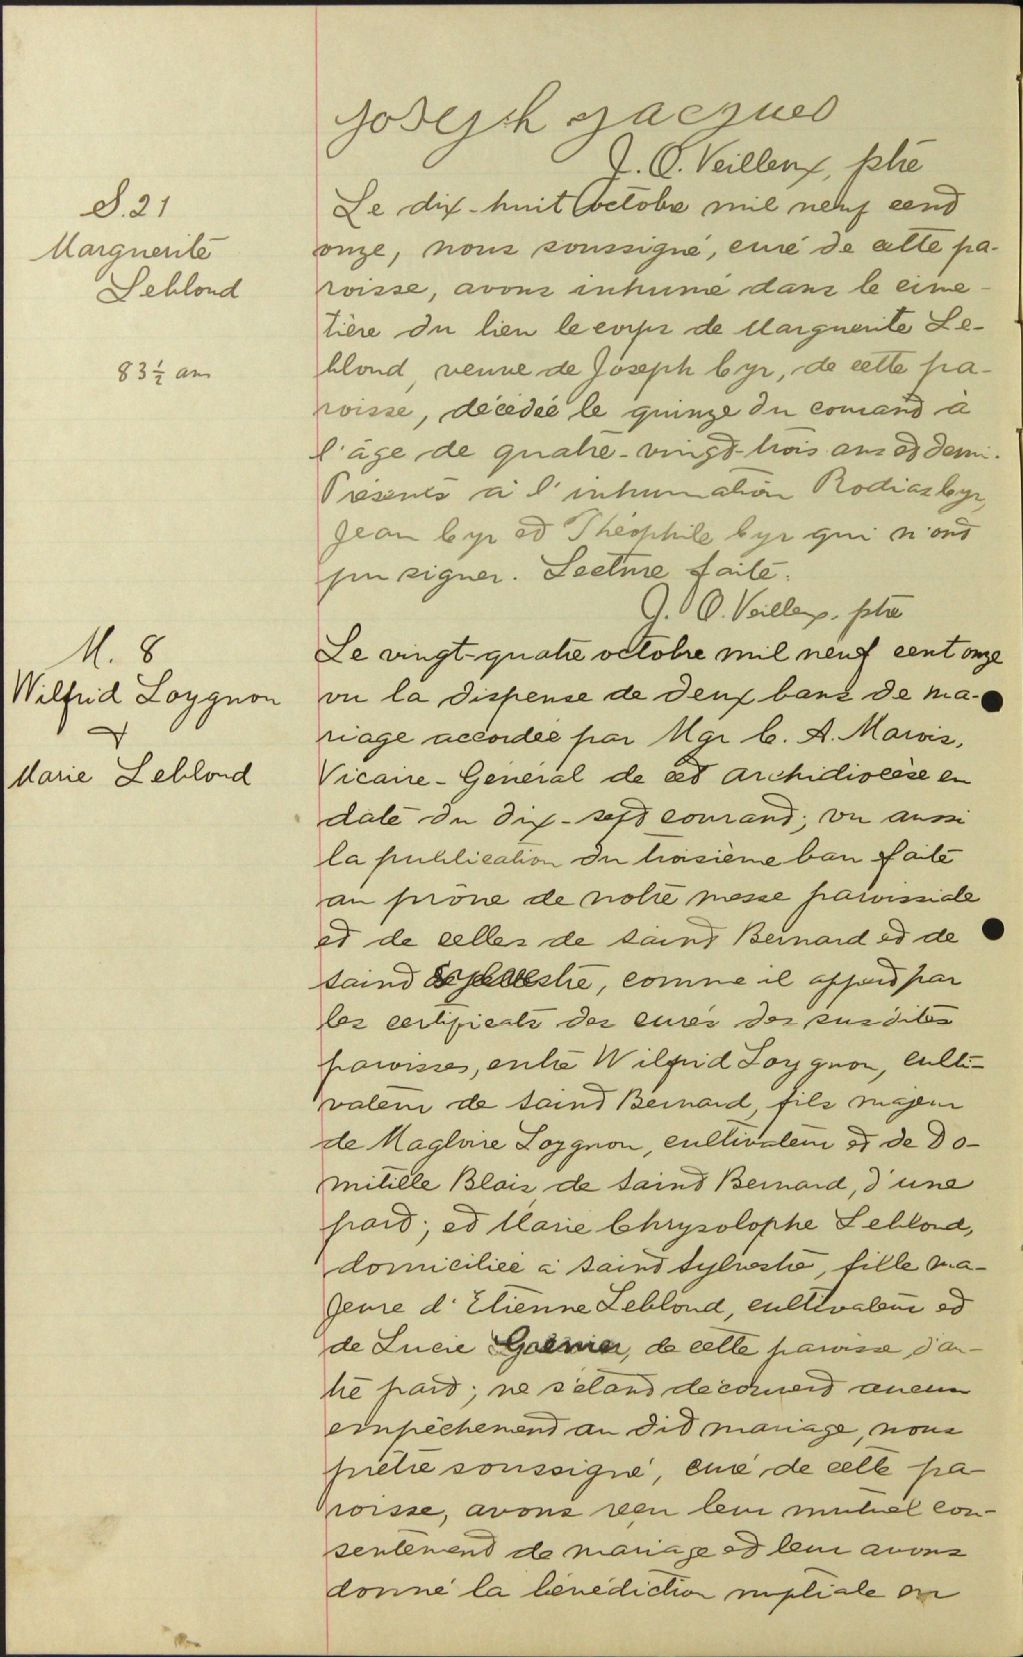 Joseph Jacques
J. O. Veilleux, ptre
S. 21
Marguerite
Leblond
83 ½ ans
Le dix-huit octobre mil neuf cent
onze, nous soussigné, curé de cette pa-
roisse, avons inhumé dans le cime-
tière du lieu le corps de Marguerite Le-
blond, veuve de Joseph Cyr, de cette pa-
roisse, décédée le quinze du courant à
l'âge de quatre-vingt-trois ans et demi.
Présents à l'inhumation Rodias Cyr,
Jean Cyr et Théophile Cyr qui n'ont
pu signer. Lecture faite.
J. O. Veilleux, ptre
M. 8
Wilfrid Loygnon
&
Marie Leblond
Le vingt-quatre octobre mil neuf cent onze
vu la dispense de deux bans de ma-
riage accordée par Mgr C. A. Marois,
Vicaire-Général de cet archidiocèse en
date du dix-sept courant; vu aussi
la publication du troisième ban faite
au prône de notre messe paroissiale
et de celles de saint Bernard et de
saint Sylvestre, comme il appert par
les certificats des curés des susdites
paroisses, entre Wilfrid Loygnon, culti-
vateur de saint Bernard, fils majeur
de Magloire Loygnon, cultivateur et de Do-
mitille Blais, de saint Bernard, d'une
part; et Marie Chrysolophe Leblond,
domiciliée à saint Sylvestre, fille ma-
jeure d'Etienne Leblond, cultivateur et
de Lucie Grenier, de cette paroisse, d'au-
tre part; ne s'étant découvert aucun
empêchement au dit mariage, nous
prêtre soussigné, curé de cette pa-
roisse, avons reçu leur mutuel con-
sentement de mariage et leur avons
donné la bénédiction nuptiale en